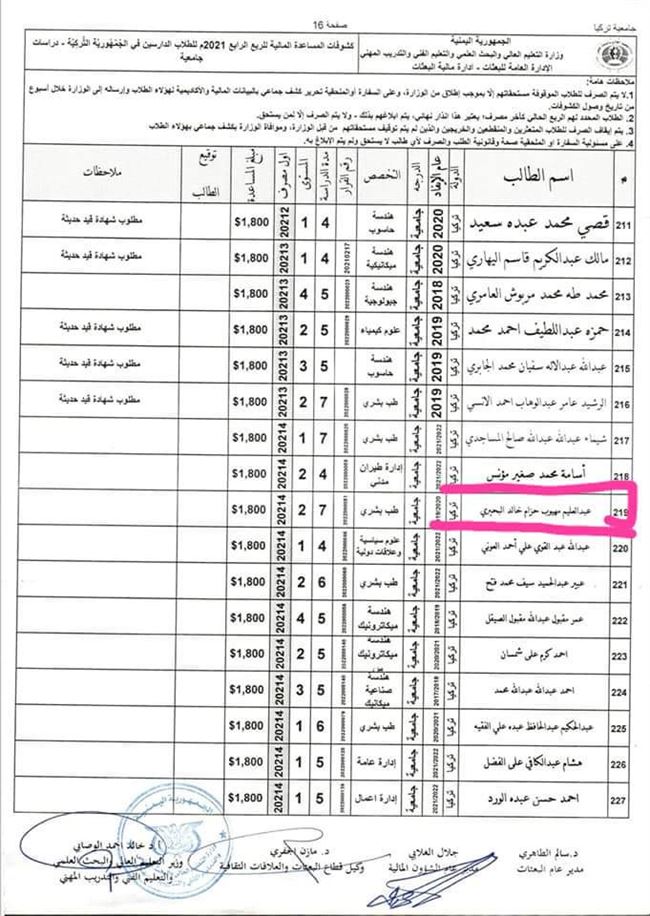 جامعية تركيا
صفحة 16
الجمهورية اليمنية
وزارة التعليم العالي والبحث العلمي والتعليم الفني والتدريب المهني
الادارة العامة للبعثات - ادارة مالية البعثات
كشوفات المساعدة المالية للربع الرابع 2021م للطلاب الدارسين في الجُمْهُوريَّة التُركيَّة - دراسات جامعية
ملاحظات هامة:
1.لا يتم الصرف للطلاب الموقوفة مستحقاتهم إلا بموجب إطلاق من الوزارة، وعلى السفارة أوالملحقية تحرير كشف جماعي بالبيانات المالية والاكاديمية لهؤلاء الطلاب وإرساله إلى الوزارة خلال أسبوع من تاريخ وصول الكشوفات.
2. الطلاب المحدد لهم الربع الحالي كآخر مصرف؛ يعتبر هذا انذار نهائي، يتم ابلاغهم بذلك - ولا يتم الصرف إلا لمن يستحق.
3. يتم إيقاف الصرف للطلاب المتعثرين والمنقطعين والخريجين والذين لم يتم توقيف مستحقاتهم من قبل الوزارة، وموافاة الوزارة بكشف جماعي بهؤلاء الطلاب
4. على مسئولية السفارة او الملحقية صحة وقانونية الطلب والصرف لأي طالب لا يستحق ولم يتم الابلاغ به.
# اسم الطالب الدولة عام الإيفاد الدرجه التخصص رقم القرار مدة الدراسة المستوى اول مصرف مبلغ المساعدة توقيع الطالب ملاحظات
211 قصي محمد عبده سعيد تركيا 2020 جامعية هندسة حاسوب 4 1 20212 $1,800 مطلوب شهادة قيد حديثة
212 مالك عبدالكريم قاسم اليهاري تركيا 2020 جامعية هندسة ميكانيكية 20210217 4 1 20213 $1,800 مطلوب شهادة قيد حديثة
213 محمد طه محمد مربوش العامري تركيا 2018 جامعية هندسة جيولوجية 5 4 20213 $1,800
214 حمزه عبداللطيف احمد محمد تركيا 2019 جامعية علوم كيمياء 5 2 20213 $1,800 مطلوب شهادة قيد حديثة
215 عبدالله عبدالاله سفيان محمد الجابري تركيا 2019 جامعية هندسة حاسوب 5 3 20213 $1,800 مطلوب شهادة قيد حديثة
216 الرشيد عامر عبدالوهاب احمد الانسي تركيا 2019 جامعية طب بشري 7 2 20213 $1,800 مطلوب شهادة قيد حديثة
217 شيماء عبدالله عبدالله صالح المساجدي تركيا 2021/2022 جامعية طب بشري 7 1 20214 $1,800
218 أسامة محمد صغير مؤنس تركيا 2021/2022 جامعية إدارة طيران مدني 4 2 20214 $1,800
219 عبدالعليم مهيوب حزام خالد البحيري تركيا جامعية طب بشري 7 2 20214 $1,800
220 عبدالله عبد القوي علي أحمد العوني تركيا 2021/2022 جامعية علوم سياسية وعلاقات دولية 4 1 20214 $1,800
221 عبير عبدالحميد سيف محمد فتح تركيا 2021/2022 جامعية طب بشري 6 2 20214 $1,800
222 عمر مقبول عبدالله مقبول الصيقل تركيا 2018/2019 جامعية هندسة ميكاترونيك 5 4 20214 $1,800
223 احمد كرم علي شمسان تركيا 2020/2021 جامعية هندسة ميكاترونيك 5 2 20214 $1,800
224 احمد عبدالله عبدالله محمد تركيا 2017/2018 جامعية هندسة صناعية ميكانيك 5 3 20214 $1,800
225 عبدالحكيم عبدالحافظ عبده علي الفقيه تركيا 2020/2021 جامعية طب بشري 6 1 20214 $1,800
226 هشام عبدالكافي علي الفضل تركيا 2021/2022 جامعية إدارة عامة 5 1 20214 $1,800
227 احمد حسن عبده الورد تركيا 2021/2022 جامعية إدارة اعمال 5 1 20214 $1,800
د.سالم الطاهري
مدير عام البعثات
جلال الغلابي
مدير عام الشؤون المالية
د. مازن الجفري
وكيل قطاع البعثات والعلاقات الثقافية
أ.د خالد احمد الوصابي
وزير التعليم العالي والبحث العلمي
والتعليم الفني والتدريب المهني